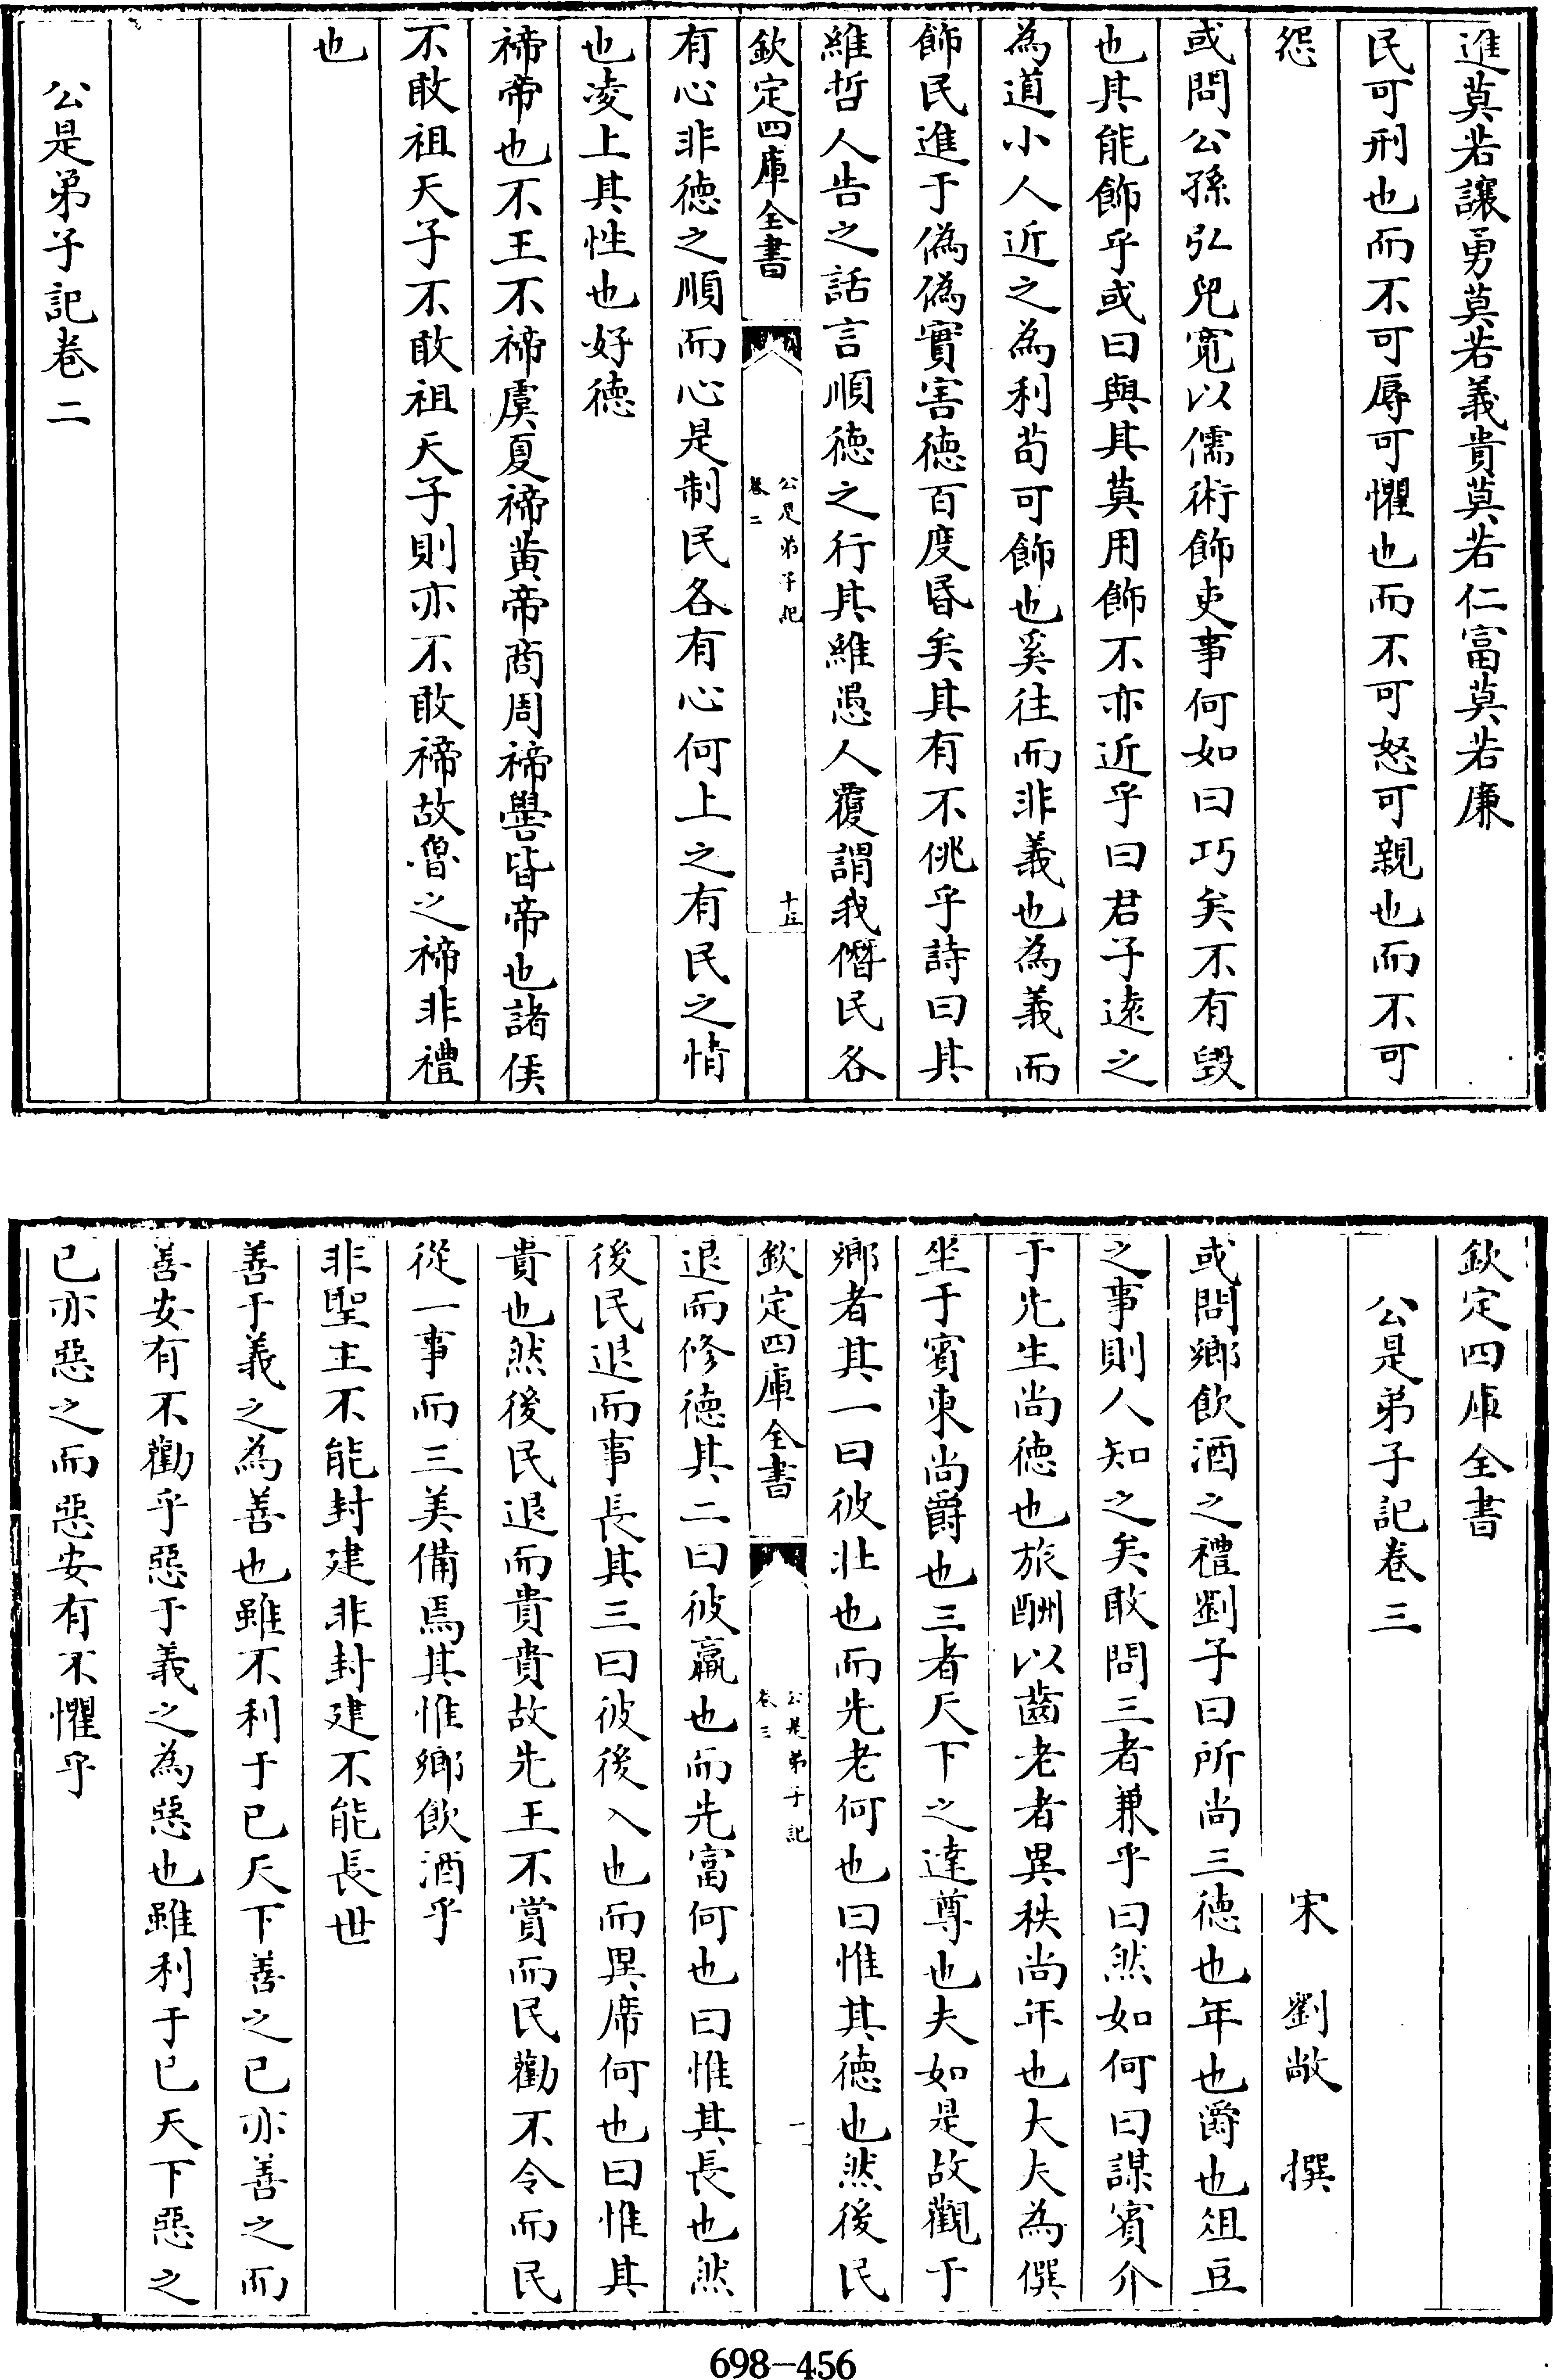 進莫若讓勇莫若義貴莫若仁富莫若廉
民可刑也而不可辱可懼也而不可怒可親也而不可
怨
或問公孫弘兒寛以儒術飾吏事何如曰巧矣不有毀
也其能飾乎或曰與其莫用飾不亦近乎曰君子遠之
為道小人近之為利茍可飾也奚往而非義也為義而
飾民進于偽偽實害徳百度昬矣其有不佻乎詩曰其
維哲人告之話言順徳之行其維愚人覆謂我僭民各
欽定四庫全書
公是弟子記
卷二
十五
有心非徳之順而心是制民各有心何上之有民之情
也凌上其性也好徳
禘帝也不王不禘虞夏禘黄帝商周禘嚳皆帝也諸侯
不敢祖天子不敢祖天子則亦不敢禘故魯之禘非禮
也
公是弟子記卷二
欽定四庫全書
公是弟子記卷三
宋 劉敞 撰
或問鄉飲酒之禮劉子曰所尚三徳也年也爵也俎豆
之事則人知之矣敢問三者兼乎曰然如何曰謀賓介
于先生尚徳也旅酬以齒老者異秩尚年也大夫為僎
坐于賓東尚爵也三者天下之達尊也夫如是故觀于
鄉者其一曰彼壯也而先老何也曰惟其徳也然後民
欽定四庫全書
公是弟子記
卷三
一
退而修徳其二曰彼羸也而先富何也曰惟其長也然
後民退而事長其三曰彼後入也而異席何也曰惟其
貴也然後民退而貴貴故先王不賞而民勸不令而民
從一事而三美備焉其惟鄉飲酒乎
非聖主不能封建非封建不能長世
善于義之為善也雖不利于已天下善之已亦善之而
善安有不勸乎惡于義之為惡也雖利于已天下惡之
已亦惡之而惡安有不懼乎
698-456